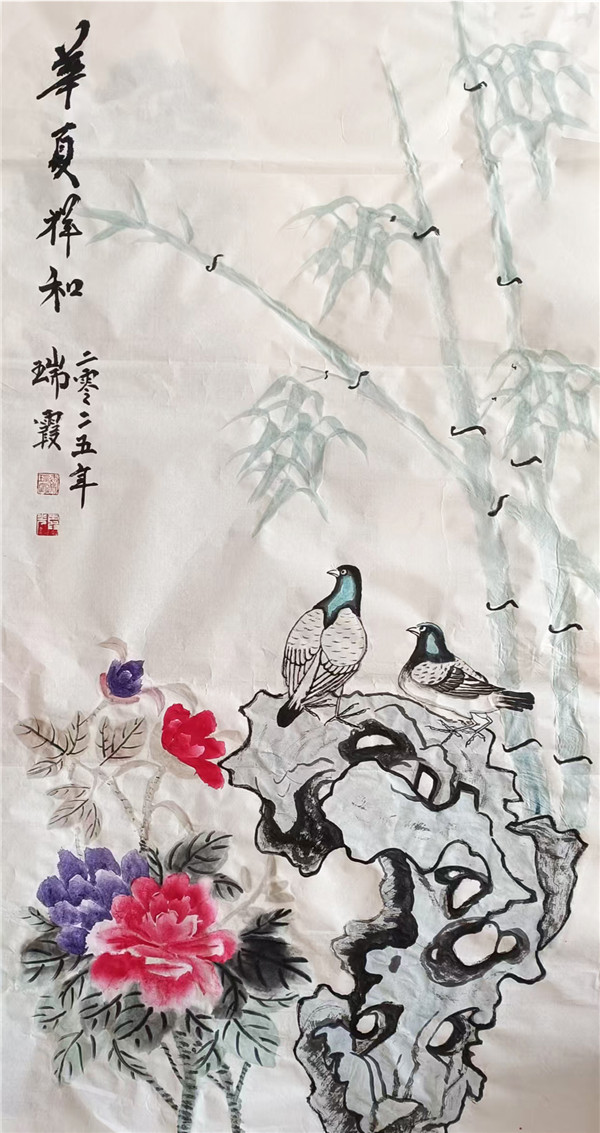 華夏祥和
二零二五年
瑞霞